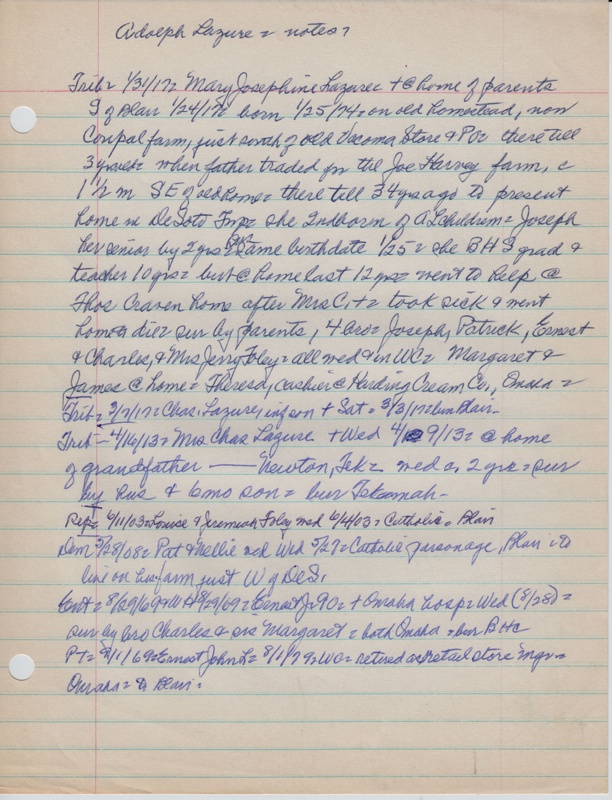 Adolph Lazure = notes =
Trib = 1/31/17 = Mary Josephine Lazure + @ home of parents
S of Blair 1/24/17 = born 1/25/74 = on old homestead, now
farm, just south of old Vacoma Store & PO = there till
3 yrs old = when father traded for the Joe Harvey farm, c
1 1/2 m SE of old home = there till 34 yrs ago to present
home in DeSoto Twp = she 2nd born of children = Joseph
her senior by 2 yrs same birthdate 1/25 = she BHS grad &
teacher 10 yrs = but @ home last 12 yrs = went to help @
Thos Craven home after Mrs C + = took sick & went
home & die = sur by parents, 4 bro = Joseph, Patrick, Ernest
& Charles, & Mrs Jerry Foley = all wed & in WC = Margaret &
James @ home = Theresa, cashier @ Harding Cream Co., Omaha =
Trib = 3/7/17 = Chas. Lazure, inf son + Sat = 3/3/17 = bur Blair -
Trib - 4/16/13 = Mrs Chas Lazure + Wed 4/9/13 = @ home
of grandfather — Newton, Tek = wed c 2 yrs = sur
by hus & 6 mo son = bur Tekamah -
Rep = 6/11/03 = Louise & Jeremiah Foley wed 6/4/03 = Catholic = Blair
Dem 5/28/08 = Pat & Nellie wed Wed 5/27 = Catholic parsonage, Blair = to
live on his farm just W of DeS.
Ent = 8/29/69 + WH 8/29/69 = Ernest J = 90 = + Omaha hosp = Wed (8/28) =
sur by bro Charles & sis Margaret = both Omaha = bur BHC
PT = 9/1/69 = Ernest John L = 8/1/79 = WC = retired as retail store mgr =
Omaha = to Blair =